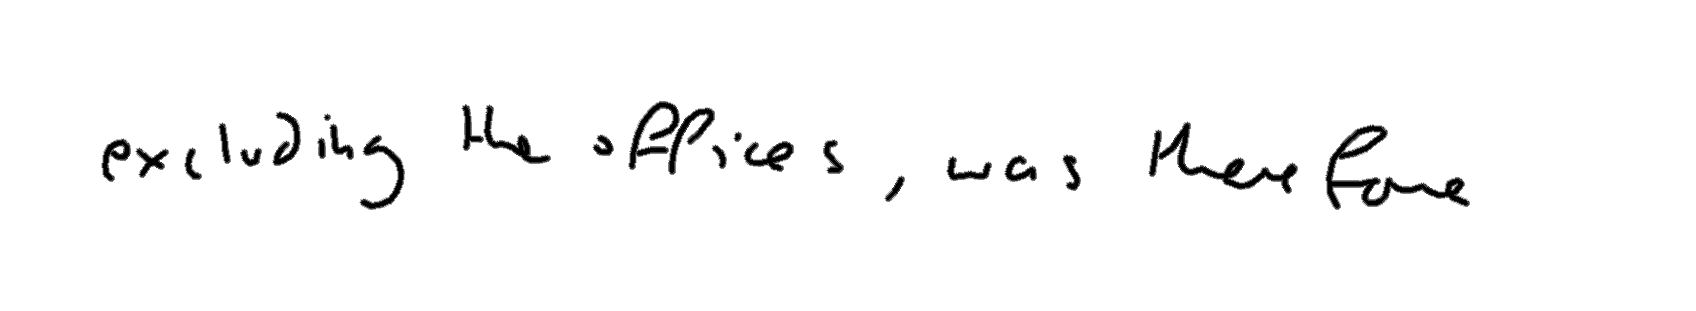 excluding the offices, was therefore